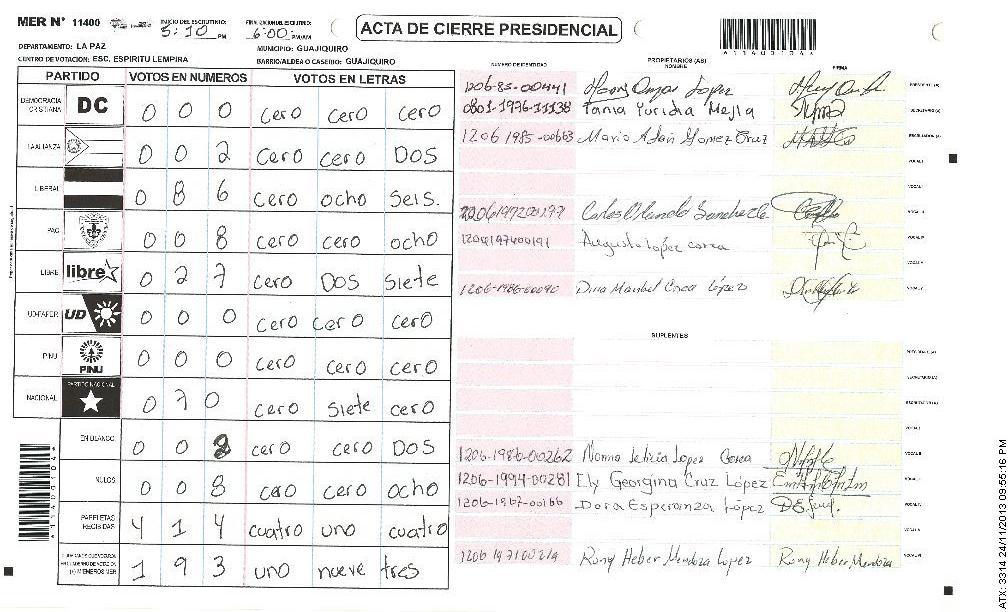 MER N° 11400 INICIO DEL ESCRUTINIO: 5:10 PM FINALIZACION DEL ESCRUTINIO: 6:00 PM/AM
ACTA DE CIERRE PRESIDENCIAL
*11400104*
DEPARTAMENTO: LA PAZ MUNICIPIO: GUAJIQUIRO
CENTRO DE VOTACION: ESC. ESPIRITU LEMPIRA BARRIO/ALDEA O CASERIO: GUAJIQUIRO
PARTIDO VOTOS EN NUMEROS VOTOS EN LETRAS
DEMOCRACIA CRISTIANA DC 0 0 0 cero cero cero
LA ALIANZA 0 0 2 cero cero DOS
LIBERAL 0 8 6 cero ocho seis.
PAC 0 0 8 cero cero ocho
LIBRE libre 0 2 7 cero DOS siete
UD-FAPER UD 0 0 0 cero cero cero
PINU PINU 0 0 0 cero cero cero
NACIONAL PARTIDO NACIONAL 0 7 0 cero siete cero
EN BLANCO 0 0 2 cero cero DOS
NULOS 0 0 8 cero cero ocho
PAPELETAS RECIBIDAS 4 1 4 cuatro uno cuatro
1 9 3 uno nueve tres
PROPIETARIOS (AS)
NUMERO DE IDENTIDAD NOMBRE FIRMA
1206-85-00441 Lopez PRESIDENTE (A)
0801-1976-11138 Tania Yuridia Mejia SECRETARIO (A)
1206 1985-00663 Mario Adan Gomez Cruz ESCRUTADOR (A)
VOCAL I
VOCAL II
Carlos Orlando VOCAL III
Augusto López correa VOCAL IV
VOCAL V
1206-1986-00090 Dina Maribel Corea López
SUPLENTES
PRESIDENTE (A)
SECRETARIO (A)
ESCRUTADOR (A)
VOCAL I
1206-1986-00262 Norma leticia Lopez Corea VOCAL II
1206-1994-00281 Ely Georgina Cruz López
1206-1967-00166 Dora Esperanza López VOCAL IV
VOCAL V
Rony Heber Mendoza Lopez Rony Heber Mendoza
ATX: 3314 24/11/2013 09:55:16 PM
*11400104*